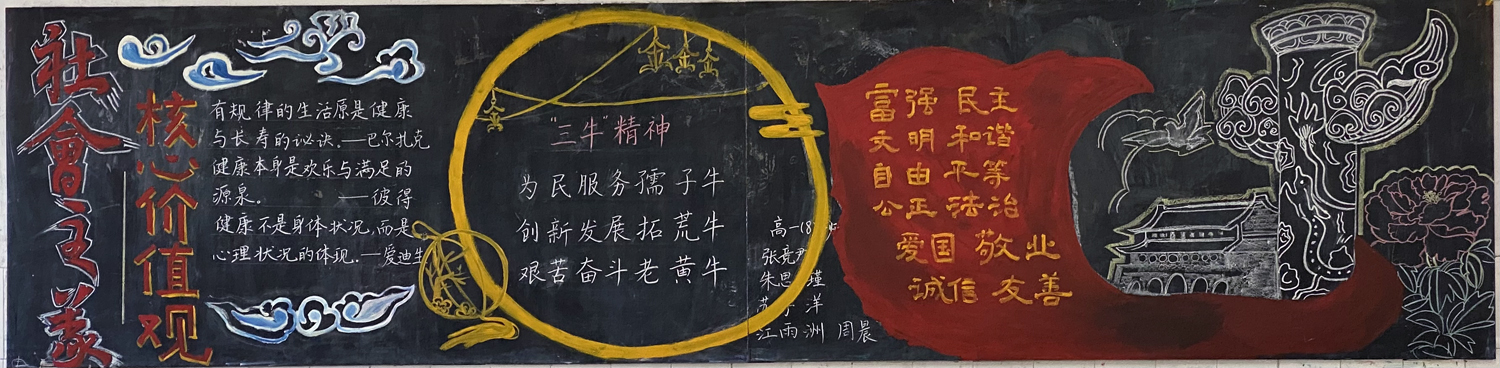 社會主義
核心价值观
有规律的生活原是健康
与长寿的秘诀。——巴尔扎克
健康本身是欢乐与满足的
源泉。——彼得
健康不是身体状况，而是
心理状况的体现。——爱迪生
“三牛”精神
为民服务孺子牛
创新发展拓荒牛
艰苦奋斗老黄牛
高一18
张竞
朱思 瑾
洋
江雨洲 周晨
富强 民主
文明 和谐
自由 平等
公正 法治
爱国 敬业
诚信 友善